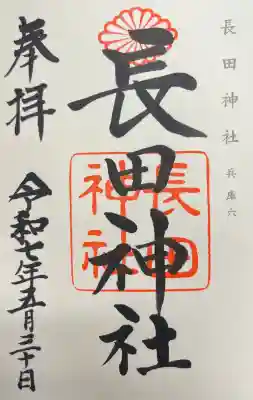 長田神社 兵庫六
奉拝
長田神社
長田
神社
令和七年五月三十日